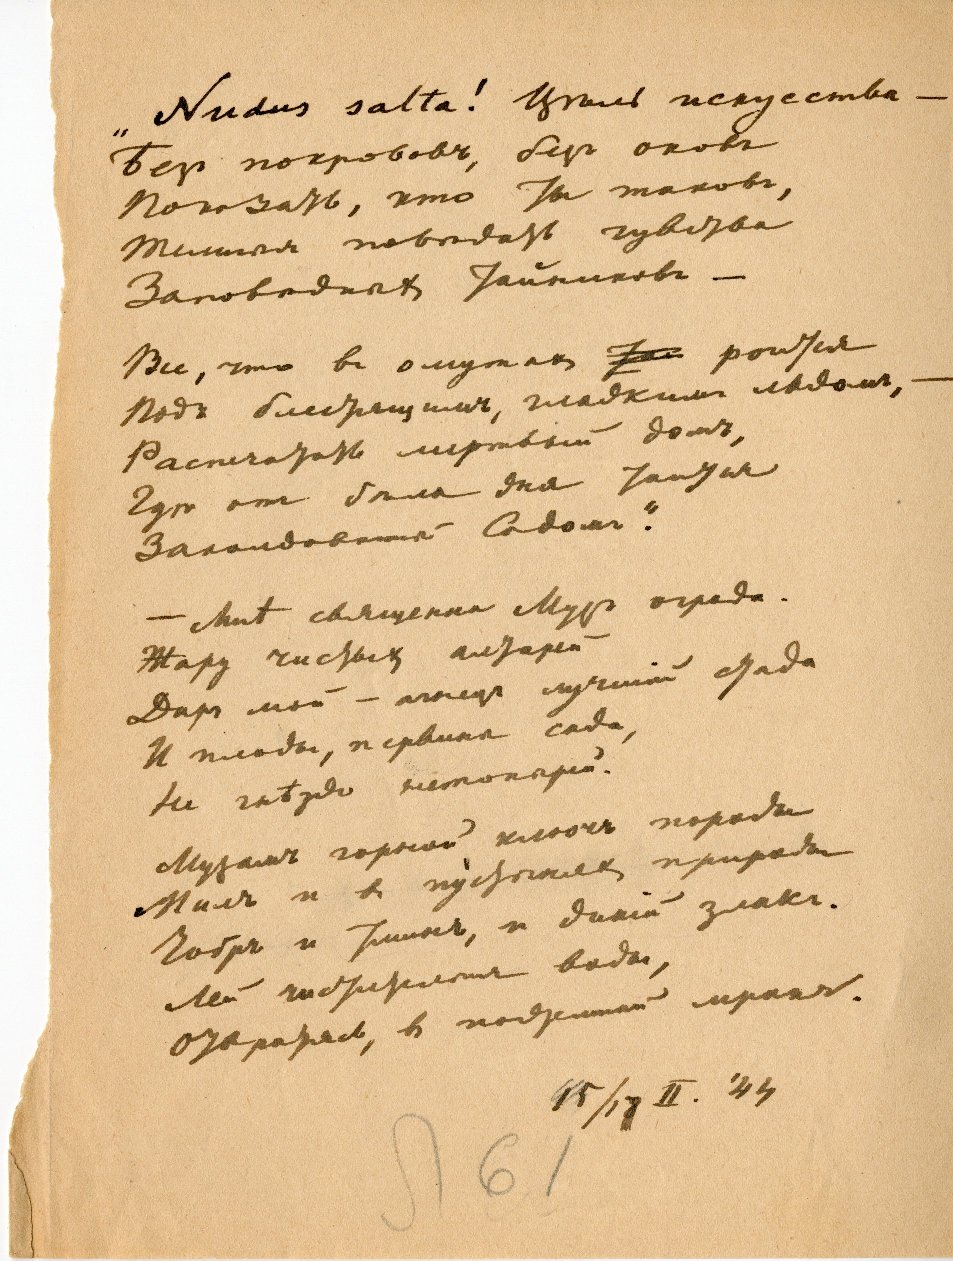 „Nudus salta! Цѣль искусства —
Безъ покрововъ, безъ оковъ
Показать, кто ты таковъ,
Темныя повѣдать чувства
Заповѣдныхъ тайниковъ —
Все, что въ омутахъ роится
Подъ блестящимъ, гладкимъ льдомъ, —
Распечатать мертвый домъ,
Гдѣ отъ бѣла дня таится
Заколдованный Содомъ“.
— Мнѣ священна Музъ ограда.
Жару чистыхъ алтарей
Даръ мой — агнецъ лучшій стада
И плоды, первина сада,
Не гнѣздо нетопырей.
Музамъ горной ключъ породы
Милъ и въ пустыняхъ природы
Чобръ и тминъ, и дикій злакъ.
Лей чистительныя воды,
Отвратясь, въ подземный мракъ.
15/18 II. '44
Л 61